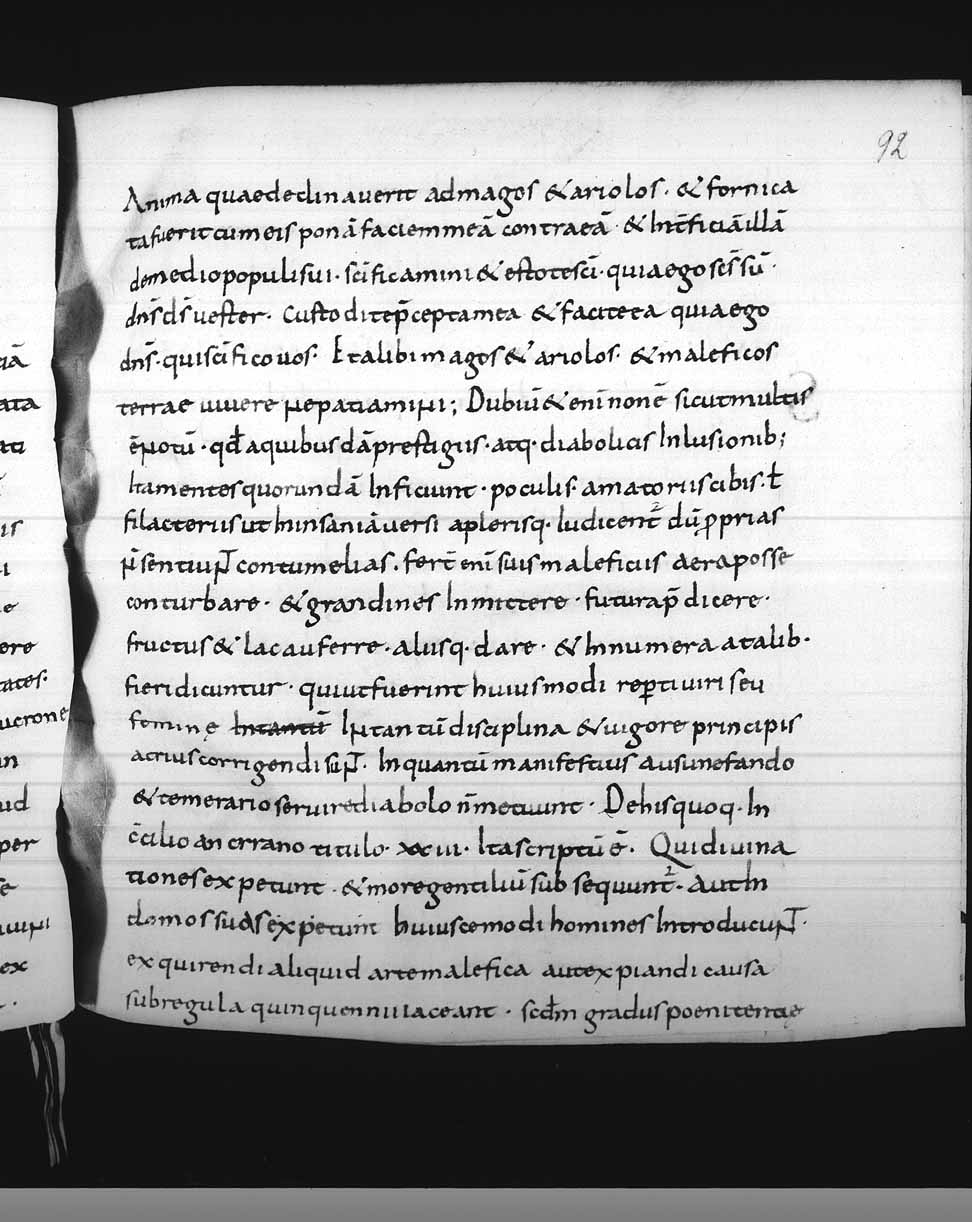 92
Anima quae declinaverit ad magos & ariolos · & fornica
ta fuerit cum eis ponā faciem meā contra eā · & int̄ficiā illā
de medio populi sui · sc̄ificamini & estote sc̄i · quia ego sc̄s sū ·
dn̄s ds̄ uester · Custodite p̄cepta mea & facite ea quia ego
dn̄s · qui sc̄ifico uos · Et alibi magos & ariolos · & maleficos
terrae uiuere ne patiamini ; Dubiū & enī non ē sicut multis
ē notū · qd̄ a quibusdā prestigiis · atq · diabolicis inlusionib ;
Ita mentes quorundā inficiunt · poculis amatoriis cibis · ł
filacteriis ut in insaniā versi a plerisq · iudicent̄ dū p̱prias
n̄ sentiunt contumelias · fert̄ enī suis maleficiis aera posse
conturbare · & grandines inmittere · futura p̄dicere ·
fructus & lac auferre · aliisq · dare · & innumera a talib ·
fieri dicuntur · qui ut fuerint huiusmodi rep̱ti uiri seu
feminę intantū Intantū disciplina & uigore principis
acrius corrigendi sunt · Inquantū manifestius ausu nefando
& temerario seruire diabolo n̄ metuunt · De his quoq · In
c̄cilio ancirano titulo · xxiii · Ita scriptū ē · Qui diuina
tiones expetunt · & more gentiliū subsequunt̄ · Aut in
domos suas expetunt huiuscemodi homines introducunt ·
exquirendi aliquid arte malefica aut expiandi causa
sub regula quinquennii iaceant · scd̄m gradus poenitentiae